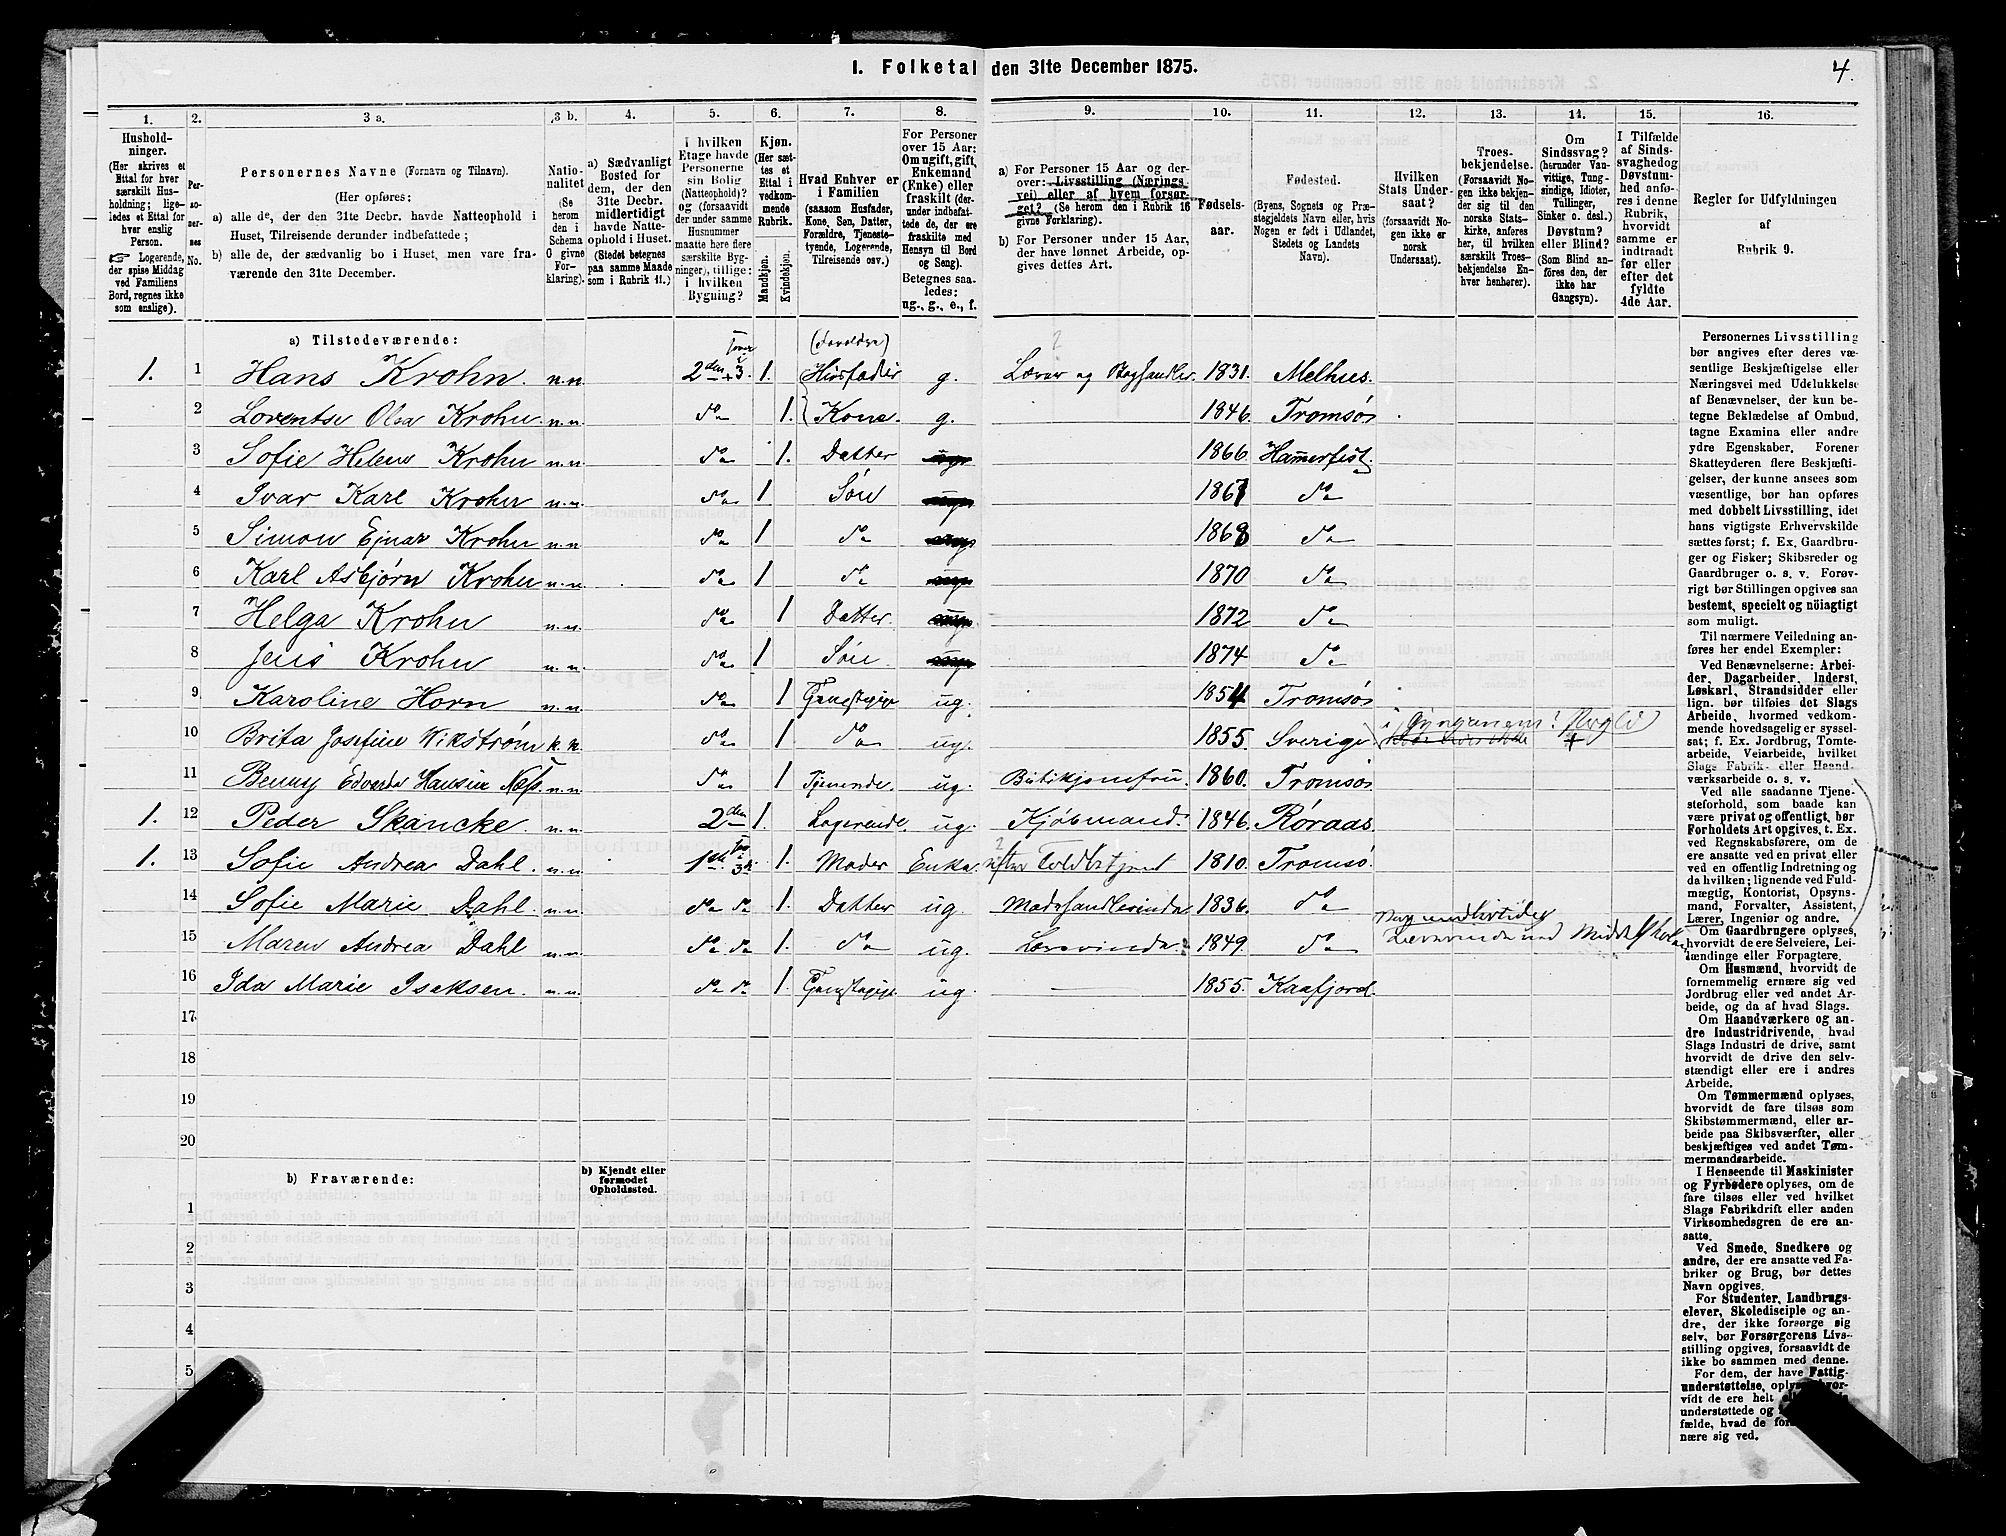 I. Folketal den 31te December 1875.
4.
1. 2. 3 a. 3 b. 4. 5. 6. 7. 8. 9. 10. 11. 12. 13. 14. 15. 16.
Hushold-
ninger.
(Her skrives et
Ettal for hver
særskilt Hus-
holdning; lige-
ledes et Ettal for
hver enslig
Person.
☞ Logerende,
der spise Middag
ved Familiens
Bord, regnes ikke
som enslige).
Per-
so-
ner-
nes
No.
Personernes Navne (Fornavn og Tilnavn).
(Her opføres:
a) alle de, der den 31te Decbr. havde Natteophold i
Huset, Tilreisende derunder indbefattede;
b) alle de, der sædvanlig bo i Huset, men vare fra-
værende den 31te December.
Natio-
nalitet
(Se
herom
den i
Schema
G givne
For-
klaring).
a) Sædvanligt
Bosted for
dem, der den
31te Decbr.
midlertidigt
havde Natte-
ophold i Huset.
(Stedet betegnes
paa samme Maade
som i Rubrik 11.)
I hvilken
Etage havde
Personerne
sin Bolig
(Natteophold)?
og (forsaavidt
der under samme
Husnummer
maatte høre flere
særskilte Byg-
ninger), tillige:
i hvilken
Bygning?
Kjøn.
(Her sæt-
tes et
Ettal i
vedkom-
mende
Rubrik.
Mandkjøn.
Kvindekjøn.
Hvad Enhver er
i Familien
(saasom Husfader,
Kone, Søn, Datter,
Forældre, Tjeneste-
tyende, Logerende,
Tilreisende osv.).
For Personer
over 15 Aar:
Om ugift, gift,
Enkemand
(Enke) eller
fraskilt (der-
under indbefat-
tede de, der ere
fraskilte med
Hensyn til Bord
og Seng).
Betegnes saa-
ledes:
ug., g., e., f.
a) For Personer 15 Aar og der-
over: Livsstilling (Nærings-
vei) eller af hvem forsør-
get? (Se herom den i Rubrik 16
givne Forklaring).
b) For Personer under 15 Aar,
der have lønnet Arbeide, op-
gives dettes Art.
Fødsels-
aar.
Fødested.
(Byens, Sognets og Præ-
stegjeldets Navn eller, hvis
Nogen er født i Udlandet,
Stedets og Landets
Navn).
Hvilken
Stats Under-
saat?
(forsaavidt No-
gen ikke er
norsk
Undersaat).
Troes-
bekjendelse.
(Forsaavidt No-
gen ikke bekjen-
der sig til den
norske Stats-
kirke, anføres
her, til hvilken
særskilt Troes-
bekjendelse En-
hver henhører).
Om
Sindssvag?
(herunder Van-
vittige, Tung-
sindige, Idioter,
Tullinger,
Sinker o. desl.)
Døvstum?
eller Blind?
(Som Blind an-
føres den, der
ikke har
Gangsyn).
I Tilfælde
af Sinds-
svaghed og
Døvstum-
hed anfø-
res i denne
Rubrik,
hvorvidt
samme er
indtraadt
før eller
efter det
fyldte
4de Aar.
Regler for Udfyldningen
af
Rubrik 9.
a) Tilstedeværende:
(Forældre)
1. 1 Hans Krohn. n.n. 2den 3. 1. Husfader g. Lærer og Boghandler. 1831. Melhus.
2 Lorentse Olea Krohn. n.n. do 1. Kone. g. 1846. Tromsø
3 Sofie Helene Krohn n.n. do 1. Datter 1866 Hammerfest.
4 Ivar Karl Krohn n.n. do 1 Søn 1867 do
5 Simon Ejnar Krohn n.n do 1 do 1868 do
6 Karl Asbjørn Krohn n.n. do 1 do 1870 do
7 Helga Krohn n.n. do 1 Datter 1872 do
8 Jens Krohn n.n. do 1 Søn 1874 do
9 Karoline Horn n.n. do 1 ug. 1854 Tromsø
10 Brita Josefine Wikstrøm k.k. do 1 do ug. 1855. Sverige
11 Benny Edvarda Hansine Næss n.n. do 1 Tjenende. ug. Butikjomfru. 1860. Tromsø
1. 12 Peder Skancke. n.n. 2den 1. Logerende. ug. Kjøbmand. 1846. Røraas.
1. 13 Sofie Andrea Dahl. n.n. 1ste 1. Moder Enke. efter Toldbetjent 1810. Tromsø.
14 Sofie Marie Dahl. n.n. do do 1. Datter ug. Modehandlerinde 1836. do
15 Maren Andrea Dahl n.n. do do 1. do ug. Lærerinde. 1849. do Lærerinde ved Middelskolen
16 Ida Marie Iseksen. n.n. do do 1. ug. 1855. Kaafjord.
17
18
19
20
b) Fraværende:
b) Kjendt eller
formodet
Opholdssted.
1
2
3
4
5
Personernes Livsstilling
bør angives efter deres væ-
sentlige Beskjæftigelse eller
Næringsvei med Udelukkelse
af Benævnelser, der kun be-
tegne Beklædelse af Ombud,
tagne Examina eller andre
ydre Egenskaber. Forener
Skatteyderen flere Beskjæfti-
gelser, der kunne ansees som
væsentlige, bør han opføres
med dobbelt Livsstilling, idet
hans vigtigste Erhvervskilde
sættes først; f. Ex. Gaardbru-
ger og Fisker; Skibsreder og
Gaardbruger o. s. v. Forøv-
rigt bør Stillingen opgives saa
bestemt, specielt og nöiagtigt
som muligt.
Til nærmere Veiledning an-
føres her endel Exempler:
Ved Benævnelserne: Arbei-
der, Dagarbeider, Inderst,
Løskarl, Strandsidder eller
lign. bør tilføies det Slags
Arbeide, hvormed vedkom-
mende hovedsagelig er syssel-
sat; f. Ex. Jordbrug, Tomte-
arbeide, Veiarbeide, hvilket
Slags Fabrik- eller Haand-
værksarbeide o. s. v.
Ved alle saadanne Tjene-
steforhold, som baade kan
være privat og offentligt, bør
Forholdets Art opgives, t. Ex.
ved Regnskabsførere, om de
ere ansatte ved en privat eller
ved en offentlig Indretning og
da hvilken; lignende ved Fuld-
mægtig, Kontorist, Opsyns-
mand, Forvalter, Assistent,
Lærer, Ingeniør og andre.
Om Gaardbrugere oplyses,
hvorvidt de ere Selveiere, Lei-
lændinge eller Forpagtere.
Om Husmænd, hvorvidt de
fornemmelig ernære sig ved
Jordbrug eller ved andet Ar-
beide, og da af hvad Slags.
Om Haandværkere og an-
dre Industridrivende, hvad
Slags Industri de drive, samt
hvorvidt de drive den selv-
stændigt eller ere i andres
Arbeide.
Om Tømmermænd oplyses,
hvorvidt de fare tilsøs som
Skibstømmermænd, eller ar-
beide paa Skibsværfter, eller
beskjæftiges ved andet Tøm-
mermandsarbeide.
I Henseende til Maskinister
og Fyrbødere oplyses, om de
fare tilsøs eller ved hvilket
Slags Fabrikdrift eller anden
Virksomhedsgren de ere an-
satte.
Ved Smede, Snedkere og
andre, der ere ansatte ved Fa-
briker og Brug, bør dettes
Navn opgives.
For Studenter, Landbrugs-
elever, Skoledisciple og an-
dre, der ikke forsørge sig
selv, bør Forsørgerens Livs-
stilling opgives, forsaavidt de
ikke bo sammen med denne.
For dem, der have Fattig-
understøttelse,
vidt de ere helt
understøttede og
fælde, hvad de
nære sig ved.